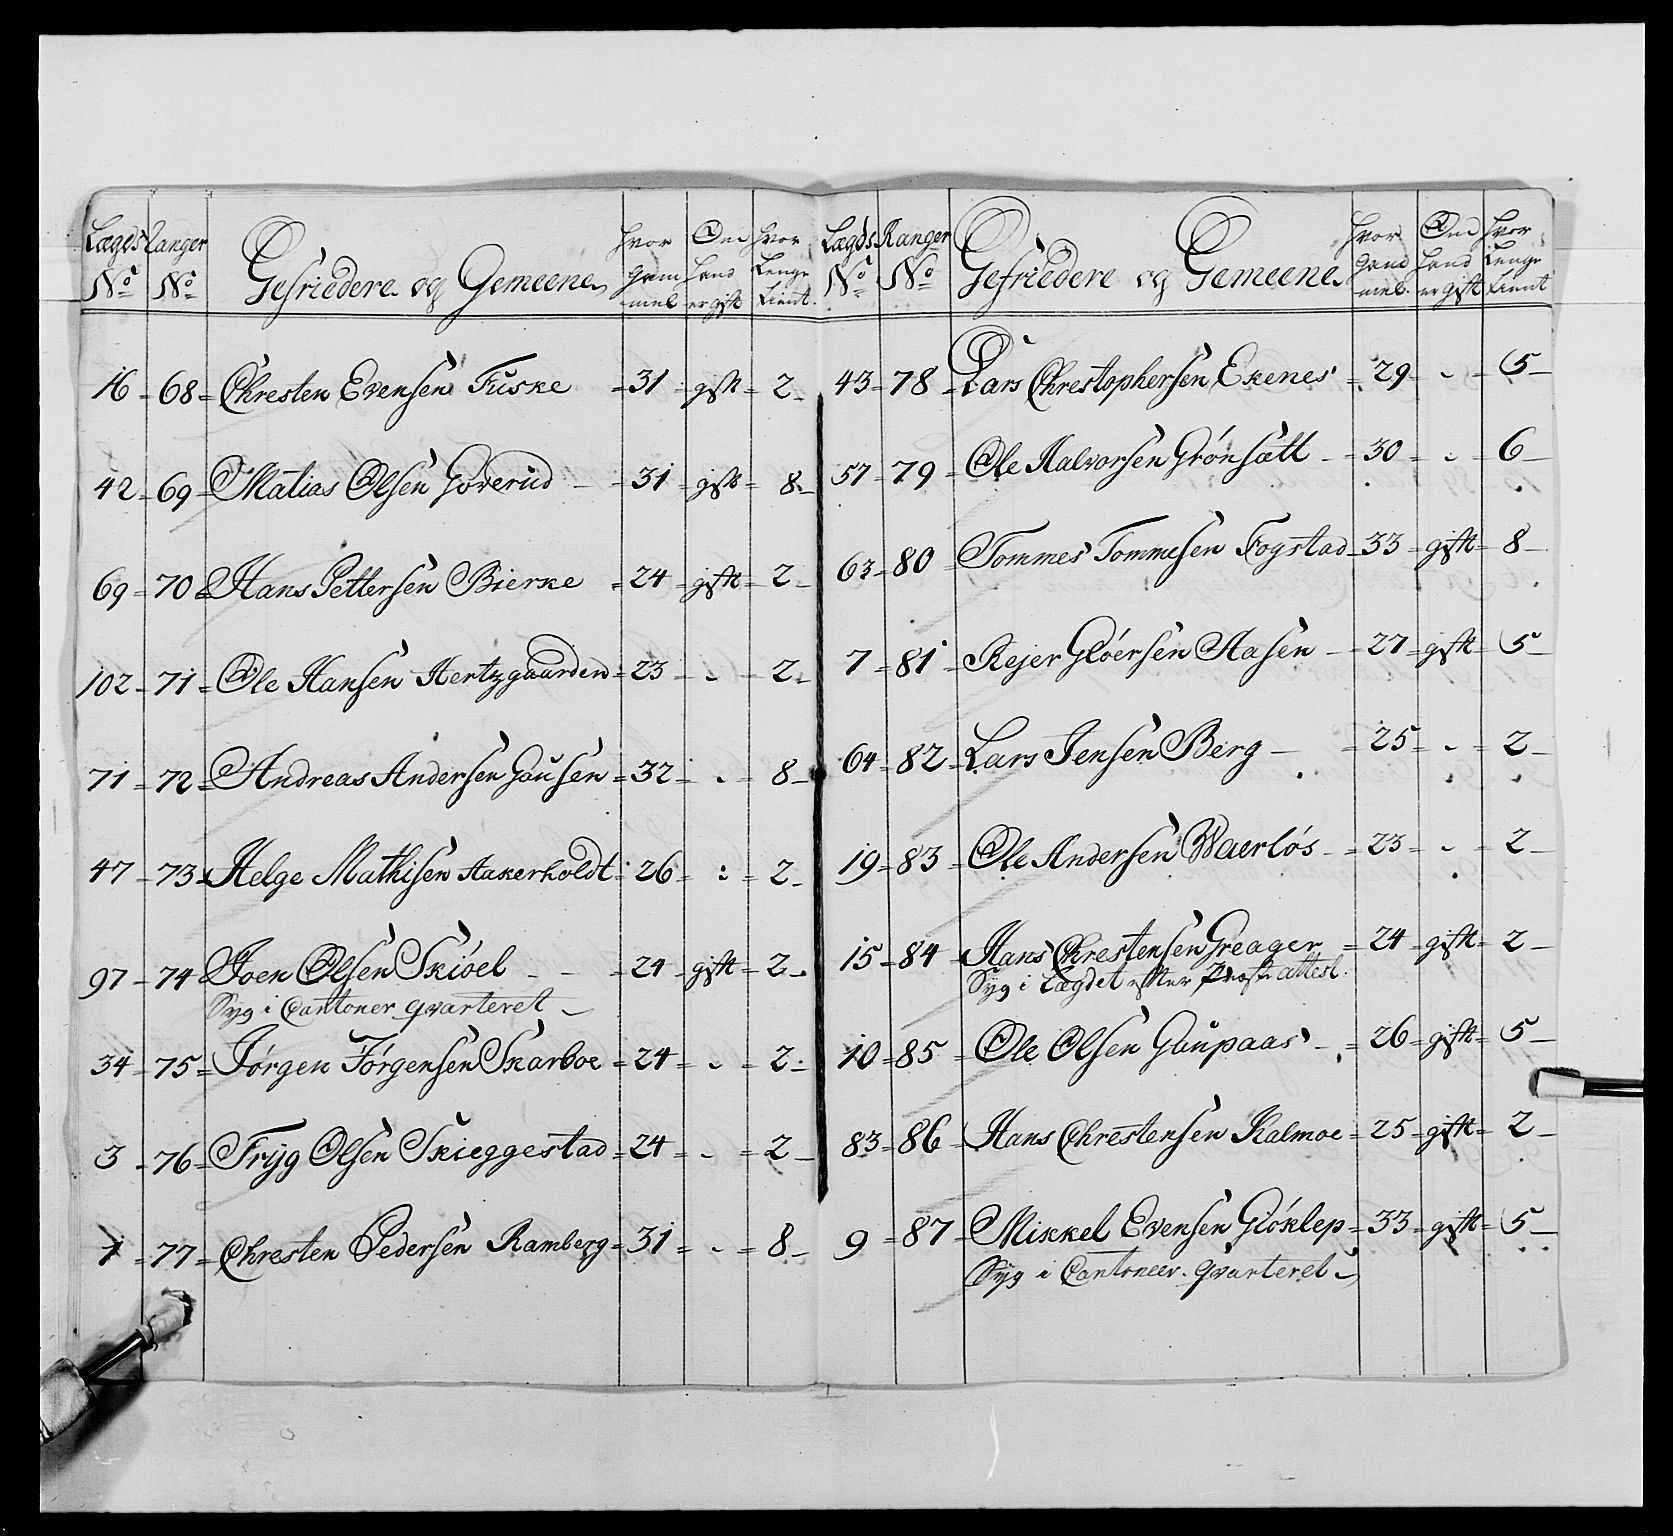 Lægds Ranger Gefriedere og Gemeene hvor Om hvor
No No gam hand Lenge
mel er gift tient.
16 - 68 - Chresten Evensen Fuske - 31 - gift - 2 -
42 - 69 - Matias Olsen Goverud - 31 - gift - 8 -
69 - 70 - Hans Pettersen Bierke - 24 - gift - 2 -
102 - 71 - Ole Hansen Hertzgaarden - 23 - - 2 -
71 - 72 - Andreas Andersen Gausen - 32 - - 8 -
47 - 73 - Helge Mathisen Aakerholdt - 26 - : - 2 -
97 - 74 - Joen Olsen Skiöel - 24 - gift - 2 -
Syg i Cantoner qvarteret
34 - 75 - Jörgen Jörgensen Skarboe - 24 - - 2 -
3 - 76 - Fryg Olsen Skieggestad - 24 - - 2 -
1 - 77 - Chresten Pedersen Ramberg - 31 - - 8 -
Lægds Ranger Gefriedere og Gemeene hvor Om hvor
No No gam hand Lenge
mel. er gift tient
43 - 78 - Lars Chrestophersen Ekenes - 29 - - 5 -
57 - 79 - Ole Halvorsen Grönsætt - 30 - - 6 -
63 - 80 - Tommes Tommesen Fogstad - 33 - gift - 8 -
7 - 81 - Rejer Glöersen Aasen - 27 - gift - 5 -
64 - 82 - Lars Jensen Berg - 25 - - 2 -
19 - 83 - Ole Andersen Waerlös - 23 - - 2 -
15 - 84 - Hans Chrestensen Greager - 24 - gift - 2 -
Syg i Lægdet efter Præste attest.
10 - 85 - Ole Olsen Gaupaas - 26 - gift - 5 -
83 - 86 - Hans Chrestensen Kalmoe - 25 - gift - 2 -
9 - 87 - Mikkel Evensen Glöklep - 33 - gift - 5 -
Syg i Cantoneer. qvarteret